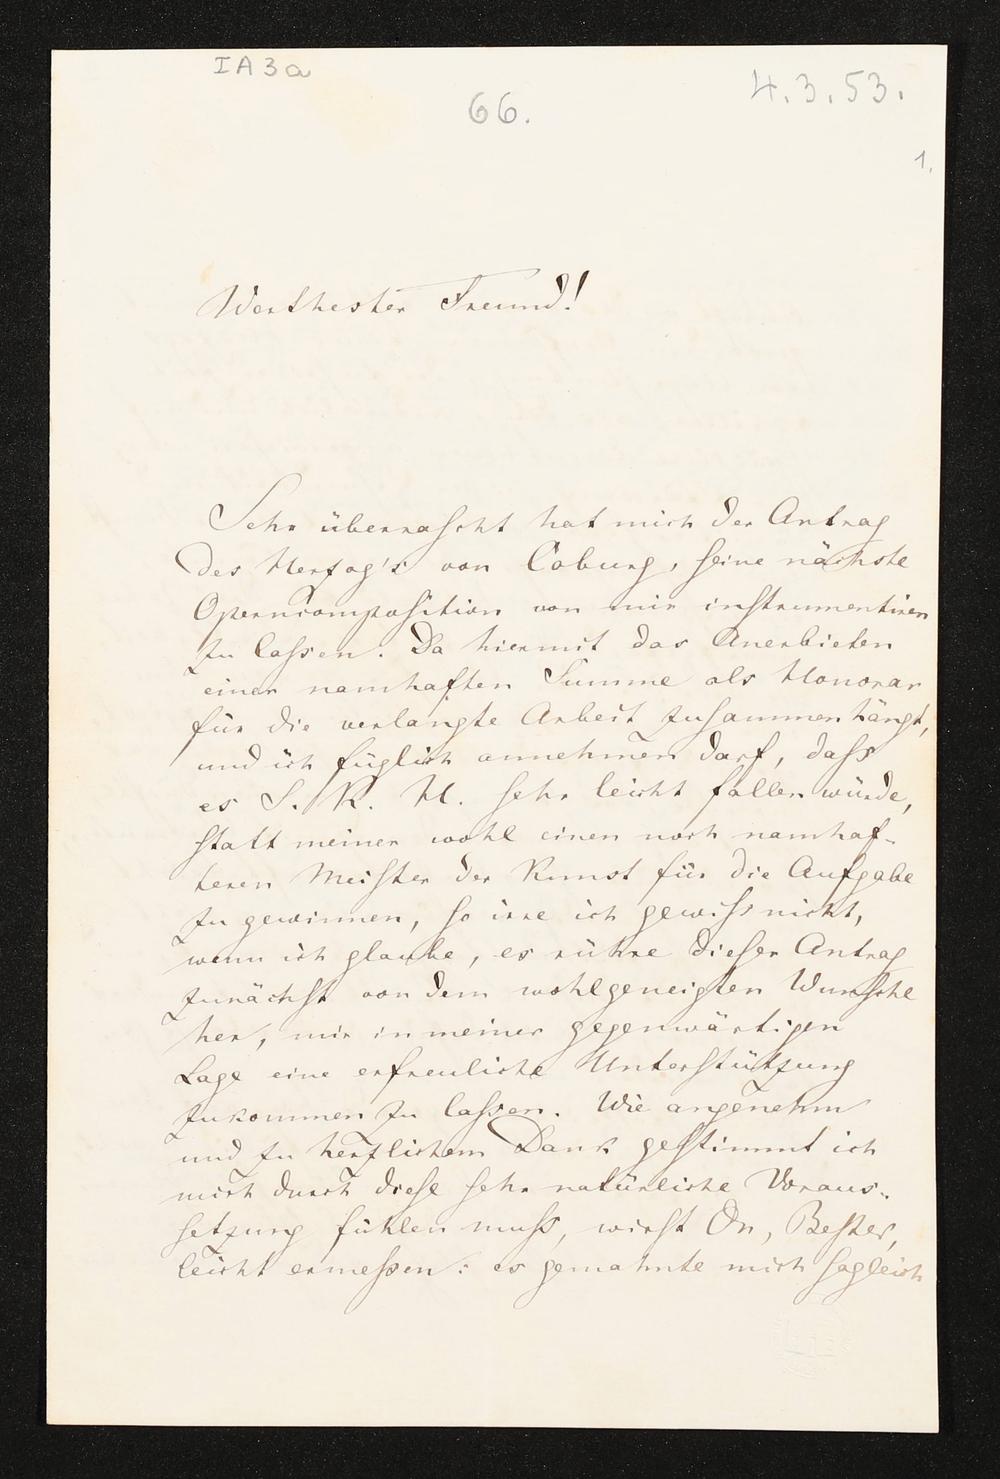 IA3a
66.
4.3.53.
1.
Werthester Freund!
Sehr überrascht hat mich der Antrag
des Herzog's von Coburg, seine nächste
Operncomposition von mir instrumentiren
zu lassen. Da hiermit das Anerbieten
einer namhaften Summe als Honorar
für die verlangte Arbeit zusammenhängt,
und ich füglich annehmen darf, dass
es S. K. H. sehr leicht fallen würde,
statt meiner wohl einen noch namhaf-
teren Meister der Kunst für die Aufgabe
zu gewinnen, so irre ich gewiss nicht,
wenn ich glaube, es rühre dieser Antrag
zunächst von dem wohlgeneigten Wunsche
her, mir in meiner gegenwärtigen
Lage eine erfreuliche Unterstützung
zukommen zu lassen. Wie angenehm
und zu herzlichem Dank gestimmt ich
mich durch diese sehr natürliche Voraus-
setzung fühlen muss, wirst Du, Bester,
leicht ermessen: es gemahnte mich sogleich